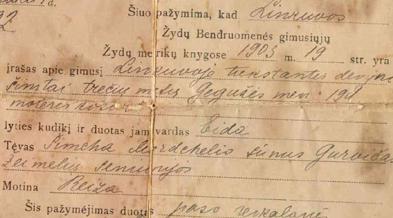 Šiuo pažymima, kad Linkuvos
Žydų Bendruomenės gimusiųjų
Žydų metrikų knygose 1903 m. 19 str. yra
įrašas apie gimusį Linkuvoje tūkstantis devyni
šimtai trečių metų Gegužės mėn 19 d
moteriškosios
lyties kudikį ir duotas jam vardas Eida
Tėvas Simcha Mordchelio sūnus Gurvičas
Žeimelių
Motina Reiza
Šis pažymėjimas duotas paso reikalams